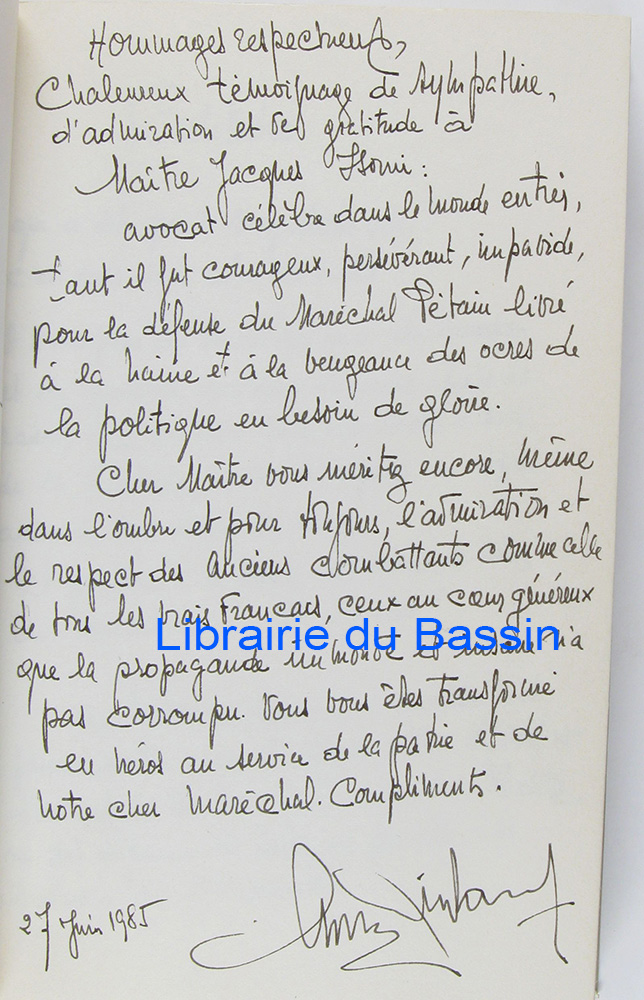 Hommages respectueux,
Chaleureux témoignage de sympathie,
d'admiration et de gratitude à
Maître Jacques Isorni :
avocat célèbre dans le monde entier,
tant il fut courageux, persévérant, impavide,
pour la défense du Maréchal Pétain livré
à la haine et à la vengeance des ocres de
la politique en besoin de gloire.
Cher Maître vous méritez encore, même
dans l'ombre et pour toujours, l'admiration et
le respect des Anciens Combattants comme celle
de tous les vrais Francais, ceux au cœur généreux
Librairie du Bassin
que la propagande immonde et insane n'a
pas corrompu. Vous vous êtes transformé
en héros au service de la patrie et de
notre cher Maréchal. Compliments.
27 Juin 1985